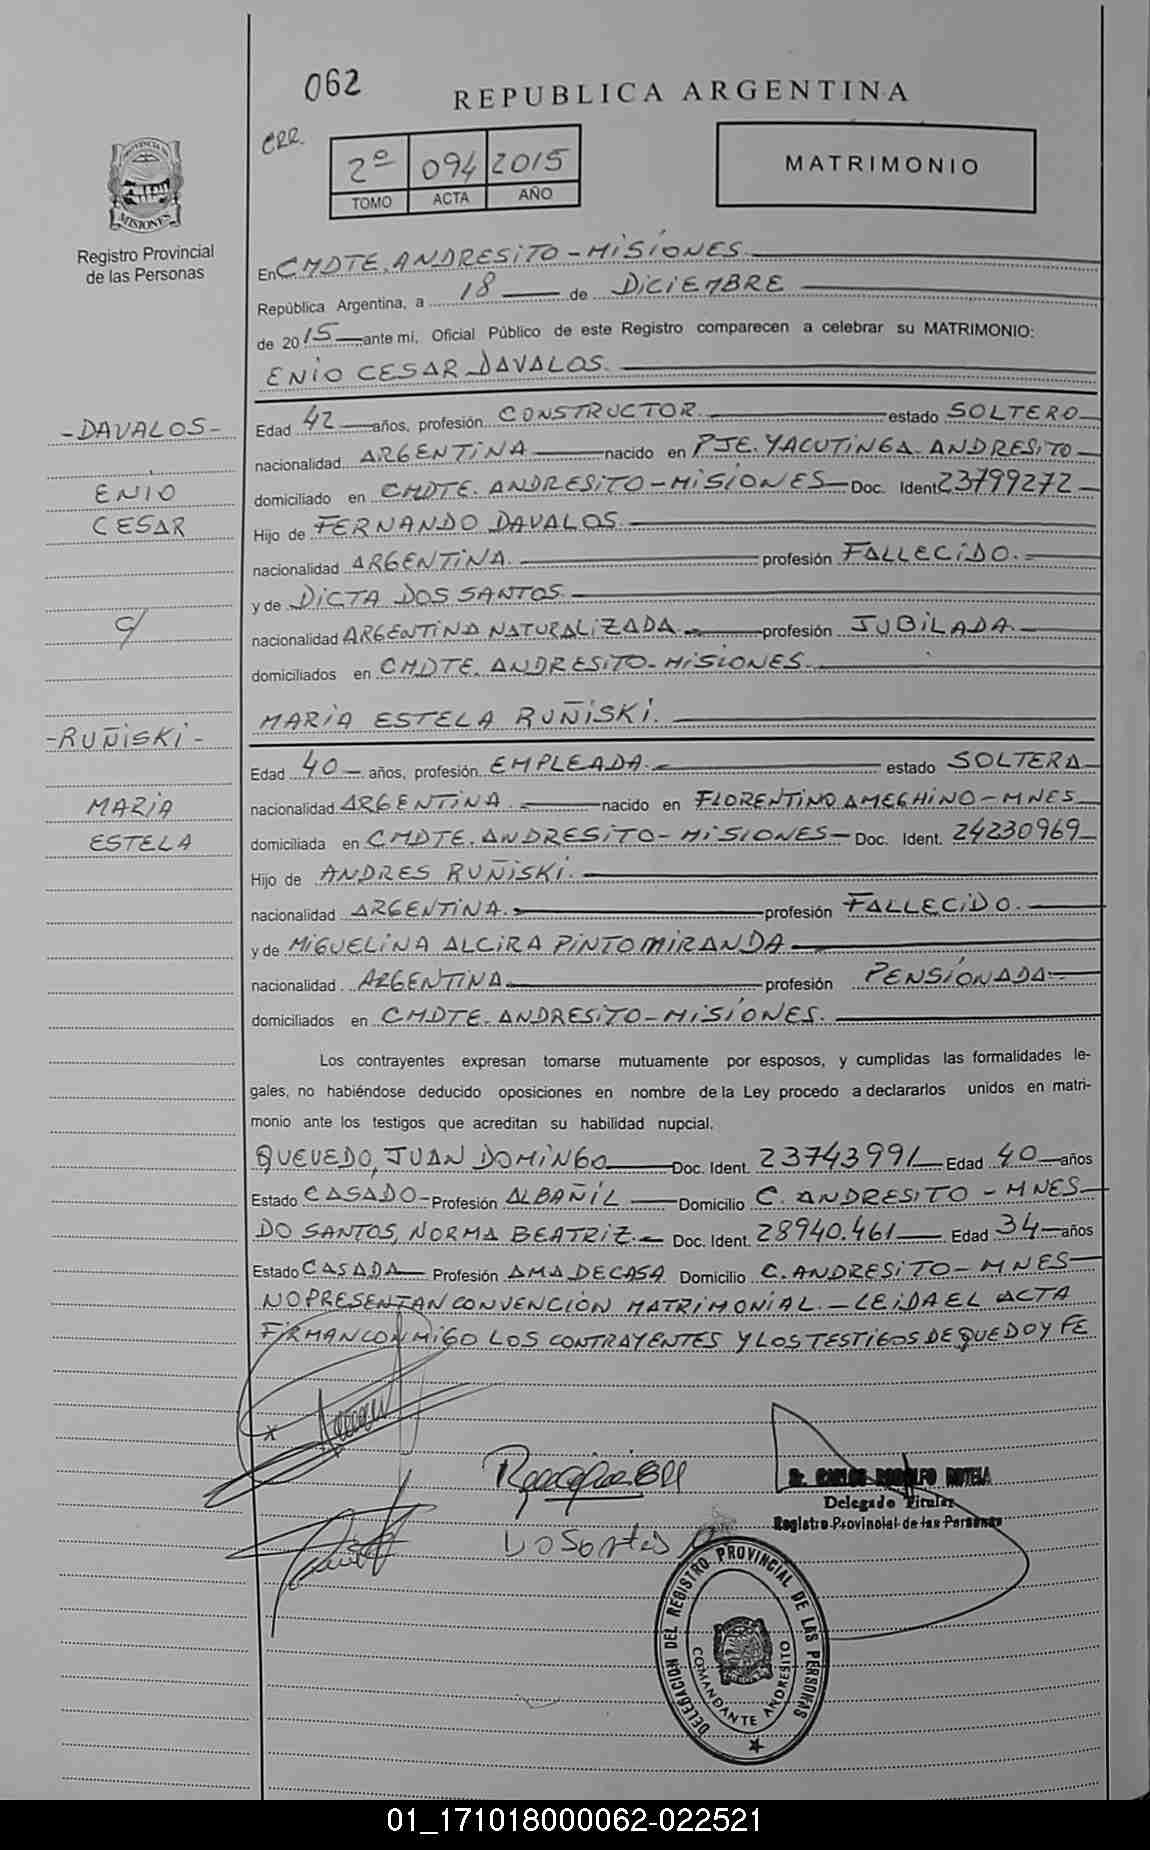 062
REPUBLICA ARGENTINA
CRR.
2º 094 2015
TOMO ACTA AÑO
MATRIMONIO
PROVINCIA DE
MISIONES
Registro Provincial
de las Personas
En CMDTE. ANDRESITO - MISIONES
República Argentina, a 18 de DICIEMBRE
de 2015 ante mi, Oficial Público de este Registro comparecen a celebrar su MATRIMONIO:
ENIO CESAR DAVALOS.
-DAVALOS-
ENIO
CESAR
C/
-RUÑISKI-
MARIA
ESTELA
Edad 42 años, profesión CONSTRUCTOR. estado SOLTERO
nacionalidad ARGENTINA nacido en PJE. YACUTINGA. ANDRESITO
domiciliado en CMDTE. ANDRESITO - MISIONES Doc. Ident. 23799272
Hijo de FERNANDO DAVALOS.
nacionalidad ARGENTINA. profesión FALLECIDO.
y de DICTA DOS SANTOS.
nacionalidad ARGENTINA NATURALIZADA. profesión JUBILADA.
domiciliados en CMDTE. ANDRESITO - MISIONES.
MARIA ESTELA RUÑISKI.
Edad 40 años, profesión EMPLEADA. estado SOLTERA
nacionalidad ARGENTINA. nacido en FLORENTINO AMEGHINO - MNES
domiciliada en CMDTE. ANDRESITO - MISIONES Doc. Ident. 24230969
Hijo de ANDRES RUÑISKI.
nacionalidad ARGENTINA. profesión FALLECIDO.
y de MIGUELINA ALCIRA PINTO MIRANDA
nacionalidad ARGENTINA profesión PENSIONADA
domiciliados en CMDTE. ANDRESITO - MISIONES.
Los contrayentes expresan tomarse mutuamente por esposos, y cumplidas las formalidades le-
gales, no habiéndose deducido oposiciones en nombre de la Ley procedo a declararlos unidos en matri-
monio ante los testigos que acreditan su habilidad nupcial.
QUEVEDO, JUAN DOMINGO Doc. Ident. 23743991 Edad 40 años
Estado CASADO - Profesión ALBAÑIL Domicilio C. ANDRESITO - MNES
DO SANTOS, NORMA BEATRIZ. Doc. Ident. 28940.461 Edad 34 años
Estado CASADA Profesión AMA DE CASA Domicilio C. ANDRESITO - MNES
NO PRESENTAN CONVENCION MATRIMONIAL. - LEIDA EL ACTA
FIRMAN CONMIGO LOS CONTRAYENTES Y LOS TESTIGOS DE QUE DOY FE
x
Sr. CARLOS RODOLFO ROTELA
Delegado Titular
Registro Provincial de las Personas
DELEGACION DEL REGISTRO PROVINCIAL DE LAS PERSONAS
COMANDANTE ANDRESITO
01_171018000062-022521